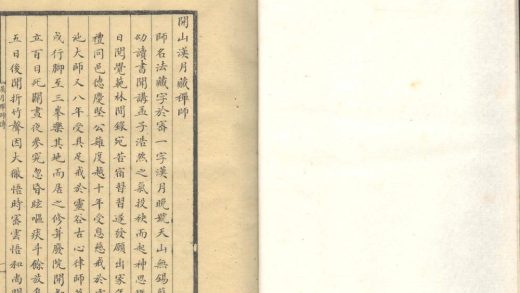 開山漢月藏禪師
師名法藏字於密一字漢月晚號天山無錫蘇
幼讀書聞講孟子浩然之氣投袂而起神思
日閱覺範林間錄宛若宿習遂發願出家年
禮同邑德慶堅公薙度越十年受息慈戒於雲
池大師又八年受具足戒於靈谷古心律師
戍行腳至三峯樂其地而居之修葺廢院開
立百日死關晝夜參究忽昏眩嘔痰斗餘放身
五日後聞折竹聲因大徹悟時密雲悟和尚